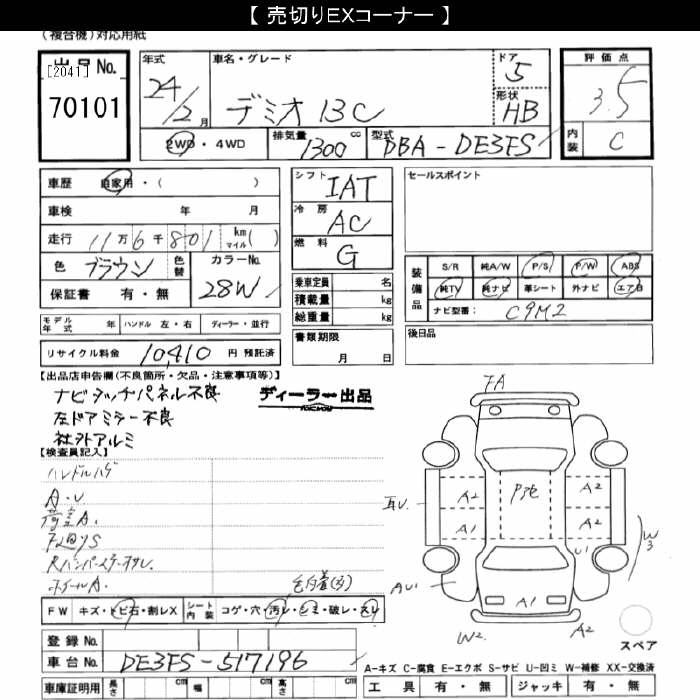 【 売切りEXコーナー 】
(複合機)対応用紙
出品No.
[2041]
70101
年式
24/2月
車名・グレード
デミオ 13C
ドア
5
形状
HB
2WD・4WD
排気量
1300cc
型式
DBA-DE3FS
評価点
3.5
内装
C
車歴 自家用・( )
車検 年 月
走行 11万6千801 km マイル( )
色 ブラウン 色替
カラーNo. 28W
保証書 有・無
モデル年式 年 ハンドル 左・右 ディーラー・並行
リサイクル料金 10,410 円 預託済
シフト
IAT
冷房
AC
燃料
G
乗車定員 名
積載量 kg
総重量 kg
書類期限
月 日
セールスポイント
装備品
S/R 純A/W P/S P/W ABS
純TV 純ナビ 革シート 外ナビ エアB
ナビ型番: C9M2
後日品
【出品店申告欄(不良箇所・欠品・注意事項等)】
ナビタッチパネル不良
左ドアミラー不良
社外アルミ
ディーラー出品
【検査員記入】
ハンドルハゲ
A・U
荷室A.
Rバンパーステーズレ.
ホイールA.
FW キズ・トビ石・割レX
シート内装 コゲ・穴・汚レ・シミ・破レ・スレ
登録No.
車台No. DE3FS-517196
車庫証明用 長さ cm 幅 cm 高さ cm
FA
A2 A2
A1 A2
U1
W3
AU1
A1
W2
A2
スペア
A-キズ C-腐食 E-エクボ S-サビ U-凹ミ W-補修 XX-交換済
工具 有・無 ジャッキ 有・無